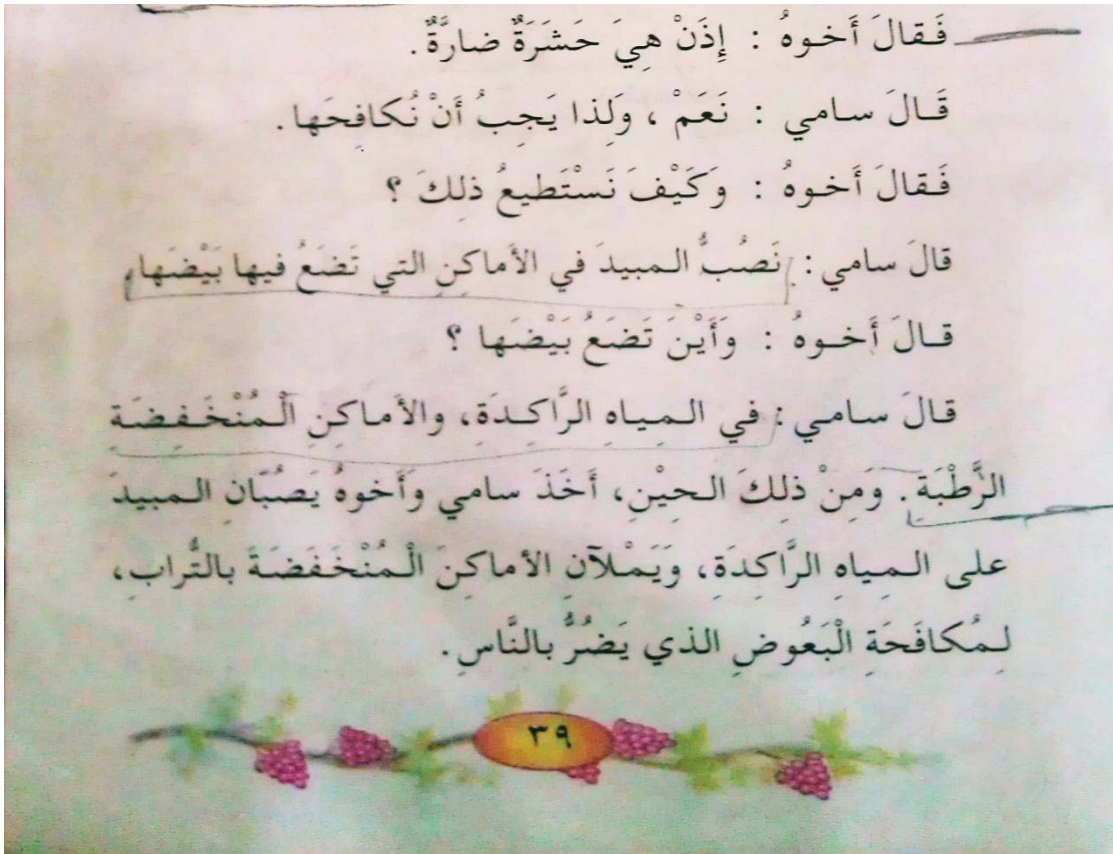 فَقالَ أَخوهُ : إِذَنْ هِيَ حَشَرَةٌ ضارَّةٌ .
قَالَ سامي : نَعَمْ ، وَلِذا يَجِبُ أَنْ نُكافِحَها .
فَقالَ أَخوهُ : وَكَيْفَ نَسْتَطيعُ ذلِكَ ؟
قالَ سامي : نَصُبُّ المبيدَ في الأَماكِنِ التي تَضَعُ فيها بَيْضَها،
قالَ أَخوهُ : وَأَيْنَ تَضَعُ بَيْضَها ؟
قالَ سامي : في المِياهِ الرَّاكِدَةِ، والأَماكِنِ الْمُنْخَفِضَةِ
الرَّطْبَةِ. وَمِنْ ذلِكَ الحِيْنِ، أَخَذَ سامي وأَخوهُ يَصُبّانِ المبيدَ
على المِياهِ الرَّاكِدَةِ، وَيَمْلآنِ الأماكِنَ الْمُنْخَفَضَةَ بالتُّرابِ،
لِمُكافَحَةِ الْبَعُوضِ الذي يَضُرُّ بالنَّاسِ .
٣٩